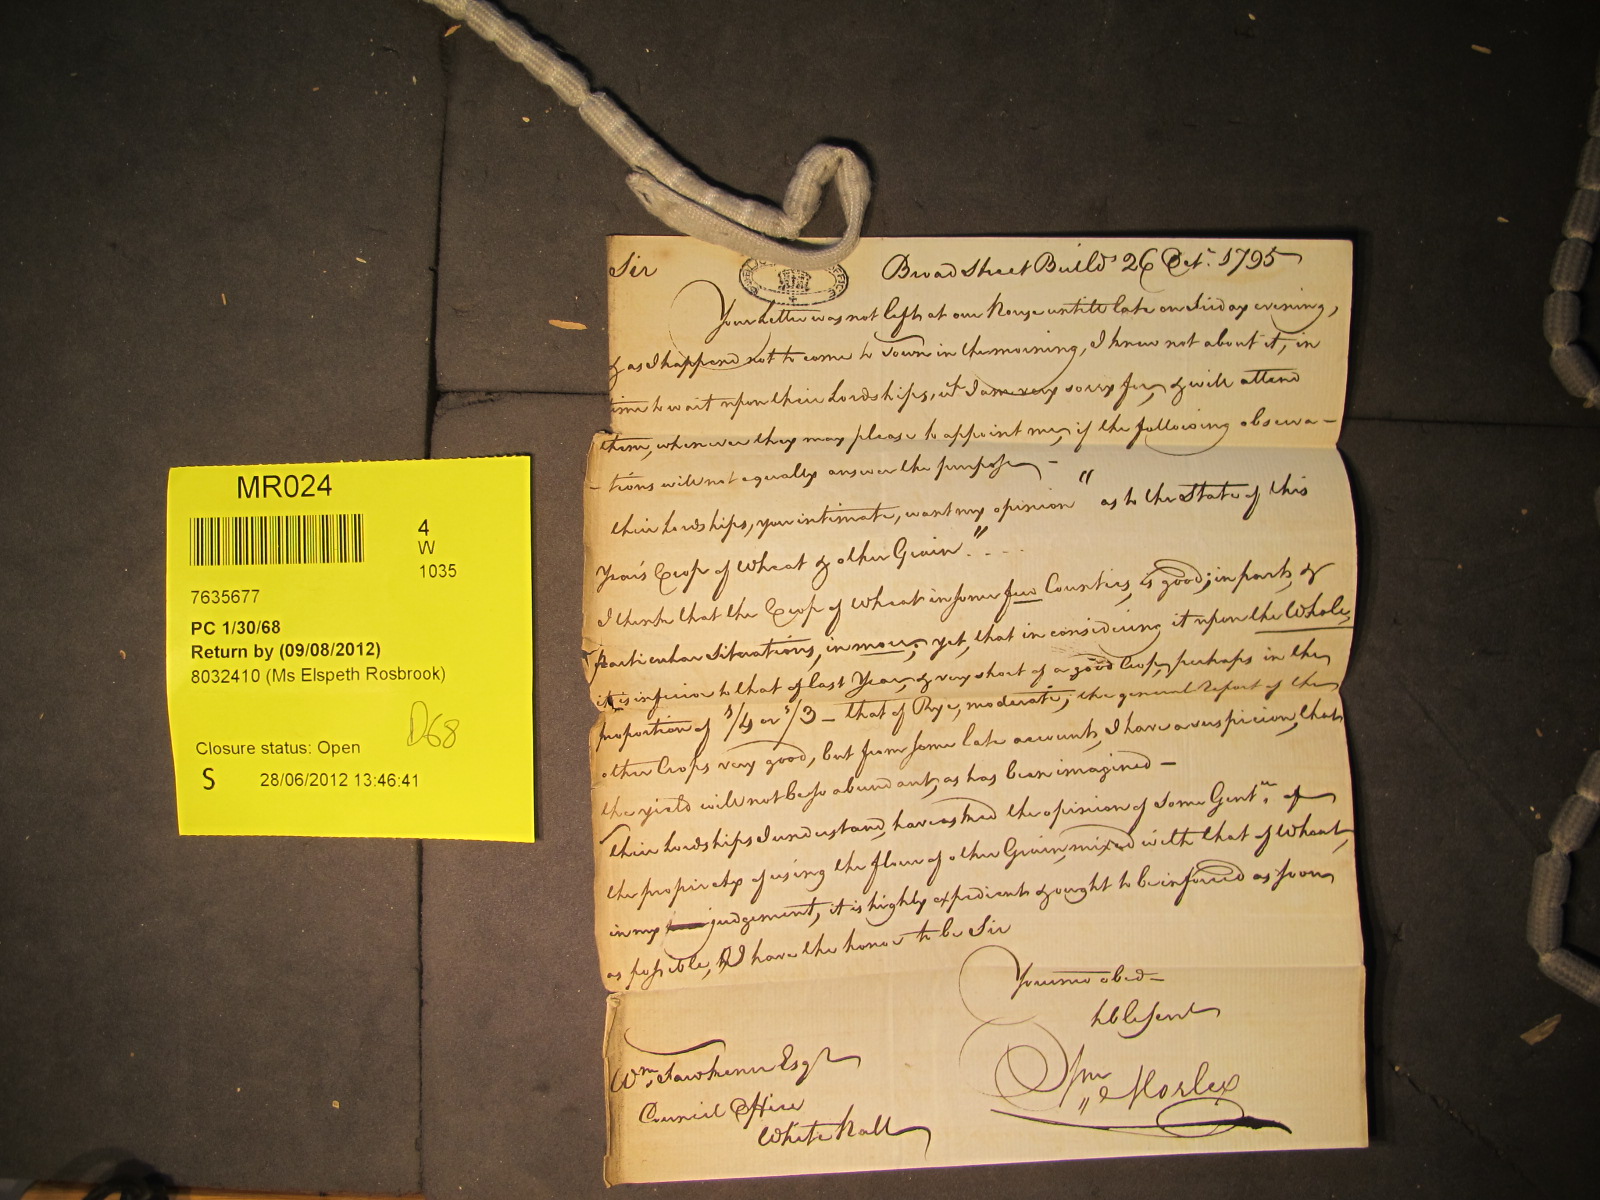 MR024
4
W
1035
7635677
PC 1/30/68
Return by (09/08/2012)
8032410 (Ms Elspeth Rosbrook)
D68
Closure status: Open
S 28/06/2012 13:46:41
Sir Broad Street Build.s 26 Oct.r 1795
Your Letter was not left at our House untill late on Friday evening,
& as I happend not to come to Town in the morning, I knew not about it, in
time to wait upon their Lordships, wh I am very sorry for, & will attend
them, whenever they may please to appoint me, if the following observa-
-tions will not equally answer the purpose -
their Lordships, you intimate, want my opinion "as to the State of this
Year's Crop of Wheat & other Grain." - - -
I think that the Crop of Wheat in some few Counties, is good; in parts, &
particular Situations, in more; yet, that in considering it upon the Whole,
it is inferior to that of last Year, & very short of a good Crop, perhaps in the
proportion of 1/4 or 1/3 - that of Rye, moderate; the general Report of the
other Crops very good, but from some late accounts, I have a suspicion, that
the yield will not be so abundant, as has been imagined -
their Lordships I understand, have asked the opinion of some Gent.n of
the propriety of using the flour of other Grain, mixed with that of Wheat,
in my judgement, it is highly expedient & ought to be inforced as soon
as possible, & I have the honor to be Sir
Your mo obed-
hble Servt
Wm Fawkener Esqr
Council Office
White hall
Wm Morley